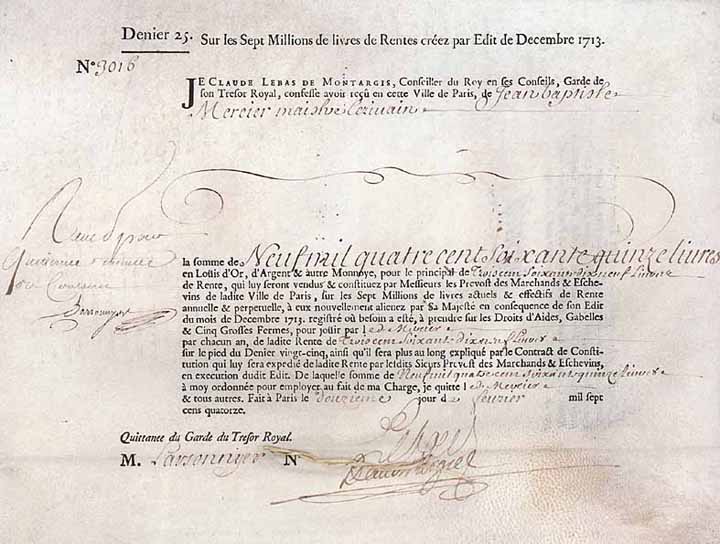 Denier 25. Sur les Sept Millions de livres de Rentes créez par Edit de Decembre 1713.
N° 3016
JE CLAUDE LEBAS DE MONTARGIS, Conseiller du Roy en ses Conseils, Garde de
son Tresor Royal, confesse avoir reçû en cette Ville de Paris, de Jean baptiste
Mercier maistre Ecrivain
la somme de Neuf mil quatre cent soixante quinze livres
en Loüis d'Or, d'Argent & autre Monnoye, pour le principal de Trois cens soixante dix neuf livres
de Rente, qui luy seront vendus & constituez par Messieurs les Prevost des Marchands & Esche-
vins de ladite Ville de Paris, sur les Sept Millions de livres actuels & effectifs de Rente
annuelle & perpetuelle, à eux nouvellement alienez par Sa Majesté en consequence de son Edit
du mois de Decembre 1713. registré où besoin a esté, à prendre sur les Droits d'Aides, Gabelles
& Cinq Grosses Fermes, pour joüir par led Mercier
par chacun an, de ladite Rente de Trois cens soixante dix neuf livres
sur le pied du Denier vingt-cinq, ainsi qu'il sera plus au long expliqué par le Contract de Consti-
tution qui luy sera expedié de ladite Rente par lesdits Sieurs Prevost des Marchands & Eschevins,
en execution dudit Edit. De laquelle somme de Neuf mil quatre cens soixante quinze livres
à moy ordonnée pour employer au fait de ma Charge, je quitte led Mercier
& tous autres. Fait à Paris le douzieme jour de fevrier mil sept
cens quatorze.
Quittance du Garde du Tresor Royal.
M. N°